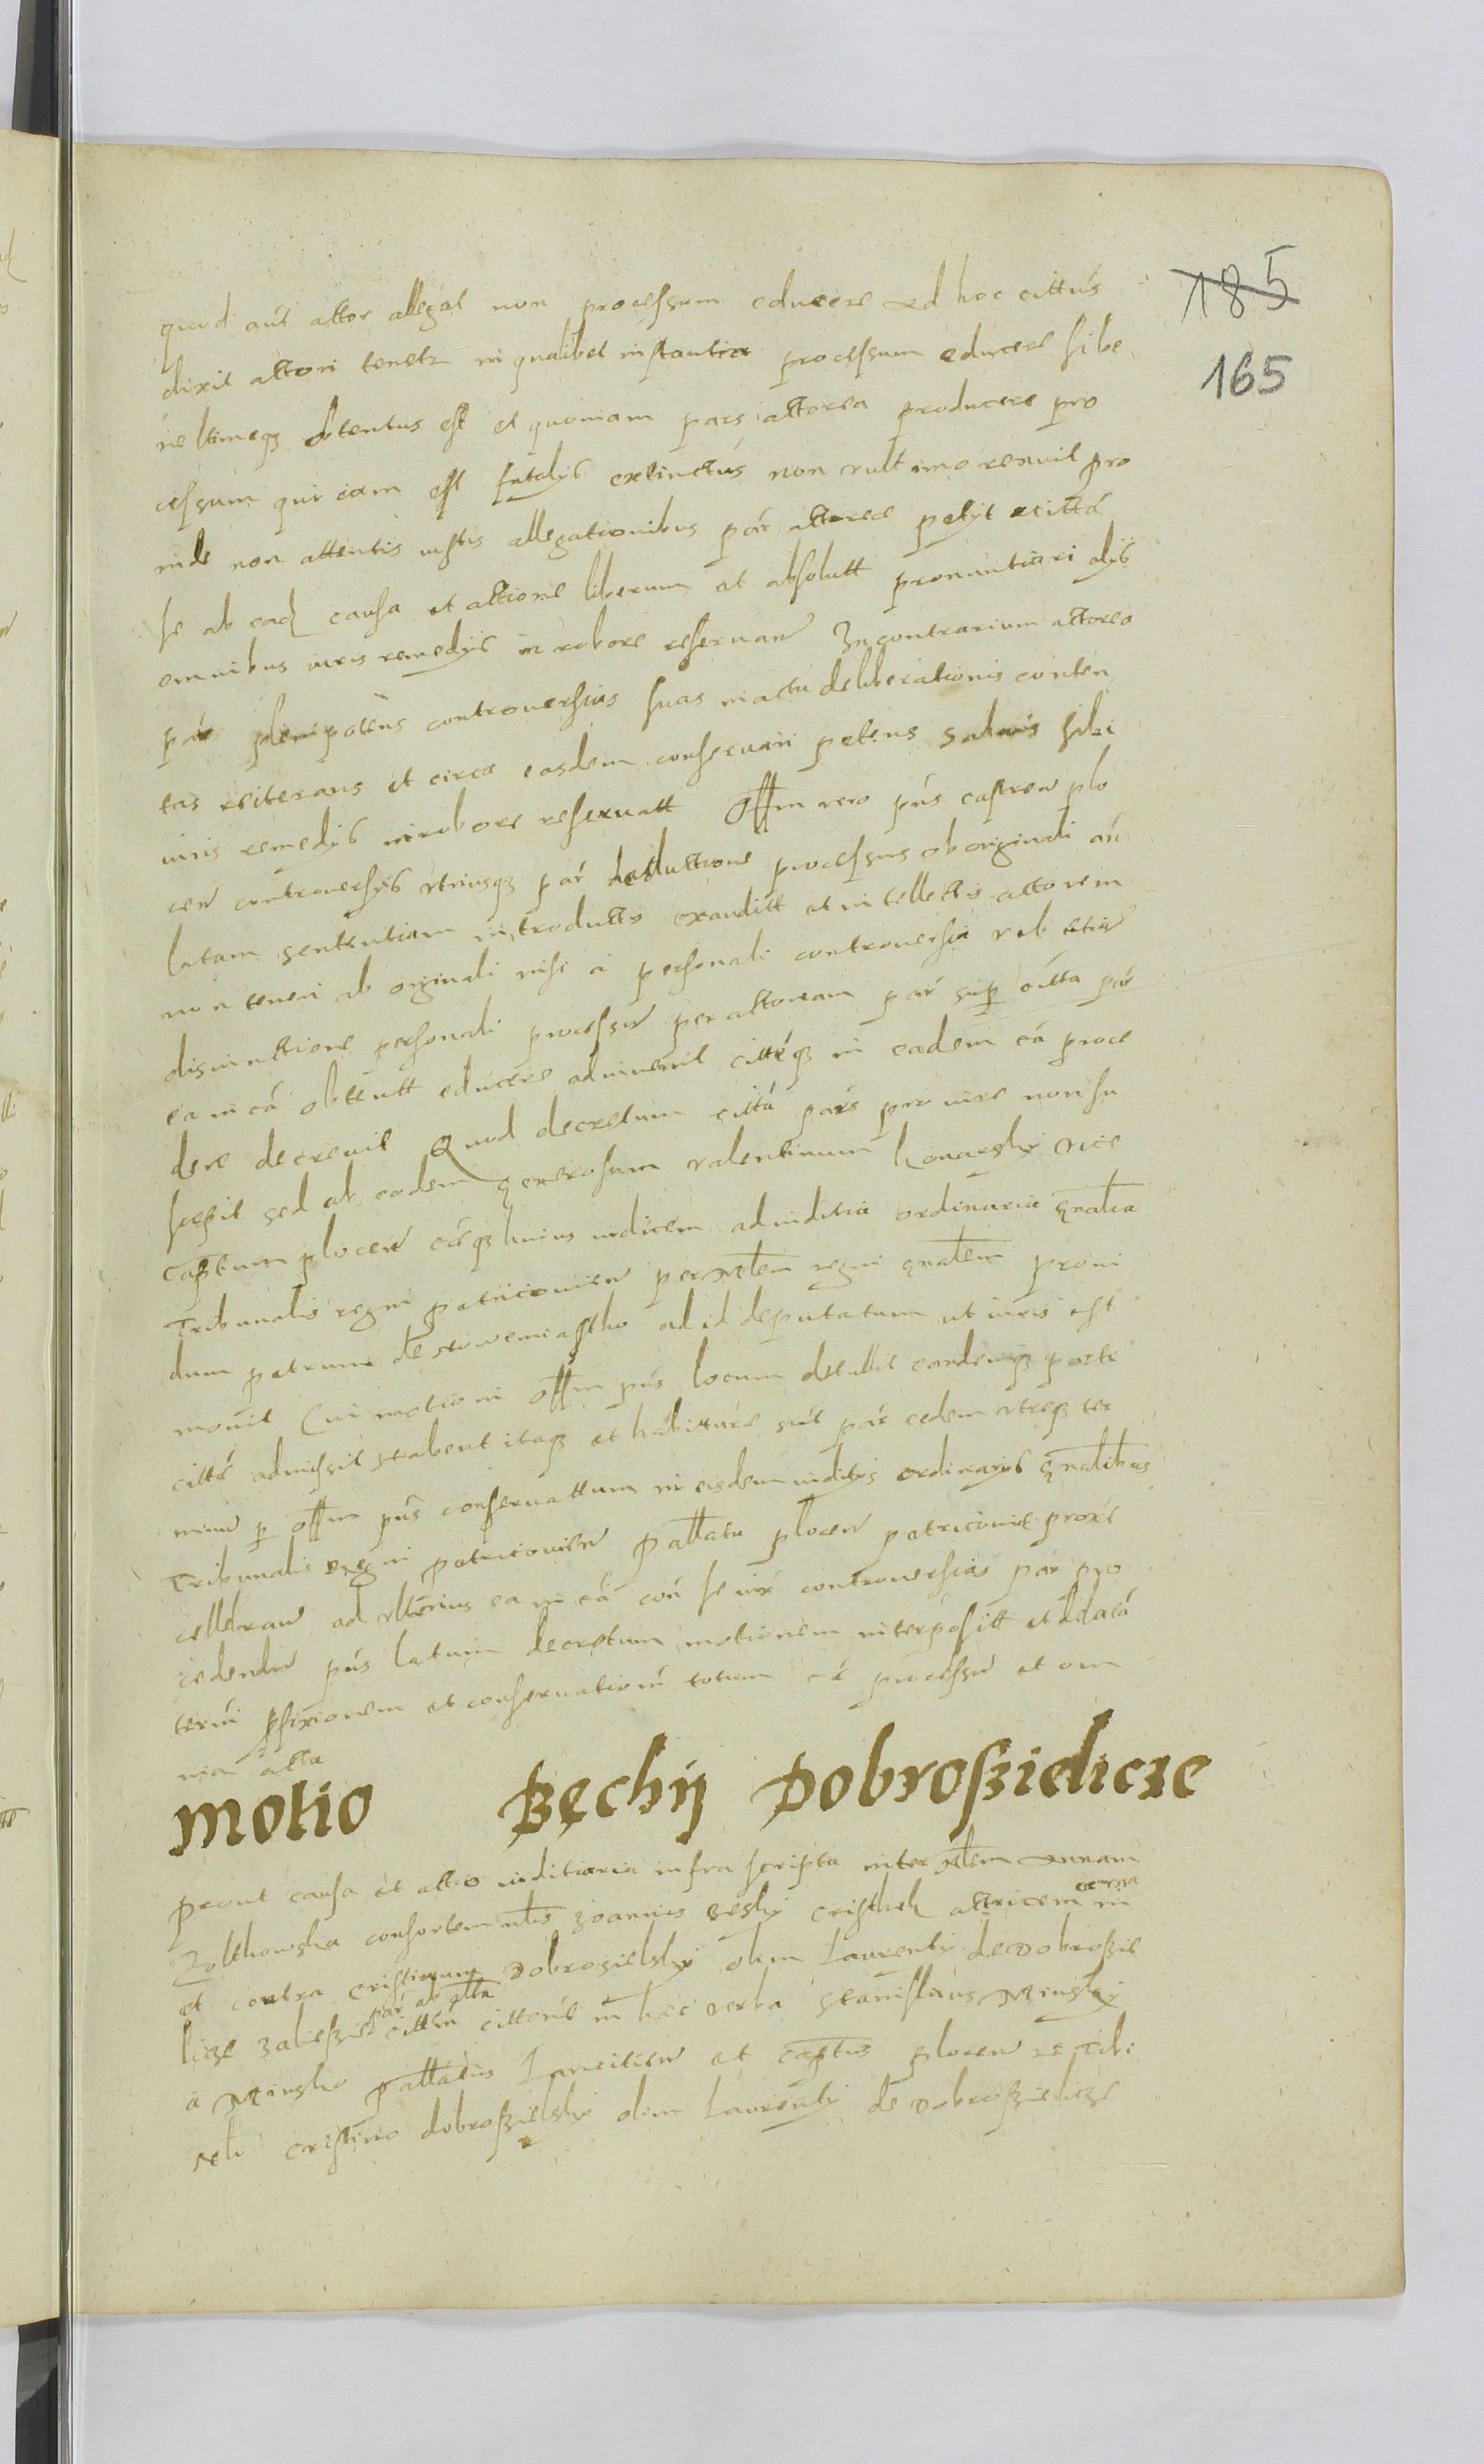 185
165
quod aut actor allegat non processum educere Ad hoc cittus
dixit actori tenetz in qualibet instantia processum educere si be
ne ltimeqz obtentus est et quoniam pars actorea producere pro
cessum qui iam est extinctus non vult imo renuit pro
inde non attentis iustis allegationibus par actoree petyt citta
se ab eadz causa et actione liberum et absolutt pronuntiari alys
omnibus iuris remedys in robore reseruan In contrarium actorea
par plenipotens controuersias suas in actu deliberationis conten
tas reiterans et circa easdem conseruari petens saluis sibi
iuris remedys in robore reseruatt Offm vero pns castren plo
cen controuersys vtriusqz par deductione processus ob originali an
latam sententiam introductis exauditt et intellectis actorem
non teneri ab originali nisi a personali controuersia
disiunctione personali processum per actoream par sup citta par
ea in ca obtentt educere adinuenit citteqz in eadem ca proce
dere decreuit Quod decretum citta pars pro iure non su
scepit sed ab eodem generosum valentinum konarsky vice
captum plocen eiqz huius iudicem ad iuditia ordinaria gnalia
Tribunalis regni petricouien per regni gnalem proui
dum petrum de nowemiastho ad id deputatum ut iuris est
mouit Cui motioni offm pns locum detullit eandemqz parti
citte admissit Habent itaqz et habitture sunt par eedem vtreqz ter
minu p offm pns conseruattum in eisdem iuditys ordinarys gnalibus
Tribunalis regni petricouien Pallatu plocen petricouie proxe
cellebran ad vlterius ea in ca con se iux controuersias par pro
cedendu pns latum decretum motionem interposittt et
termi pfixionem et conseruationem totum ce processu et om
nia acta
Motio Bęchy Dobroßielicze
Prout causa et actio iuditiaria infra scripta inter Annam
Zolthowska consortem nlis Joannis Beski actricem
et contra cristinum Dobrosielsky olim Laurenty de Dobroßie
licze par ab
citten cittatis in hec verba Stanislaus Minsky
a Minsko Pallatius Lancitien et Captus plocen Tibi
nob cristino dobroßielsky olim Laurenty de Dobroßielicze